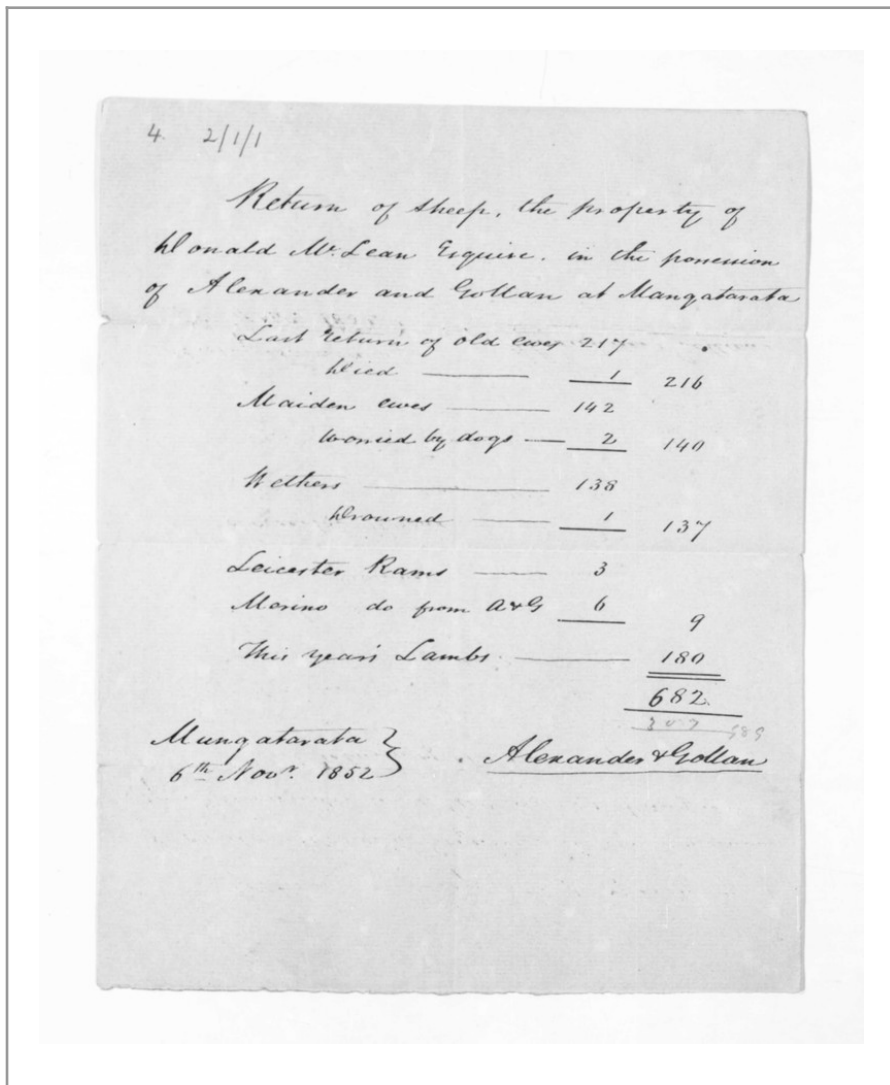 4. 2/1/1
Return of sheep, the property of
Donald McLean Esquire. in the possession
of Alexander and Gollan at Mangatarata
Last return of old ewes 217
Died 1 216
Maiden ewes 142
Worried by dogs 2 140
Wethers 138
Drowned 1 137
Leicester Rams 3
Merino do from A&G 6 9
This year's Lambs 180
682.
Mungatarata
6th Novr. 1852
Alexander & Gollan